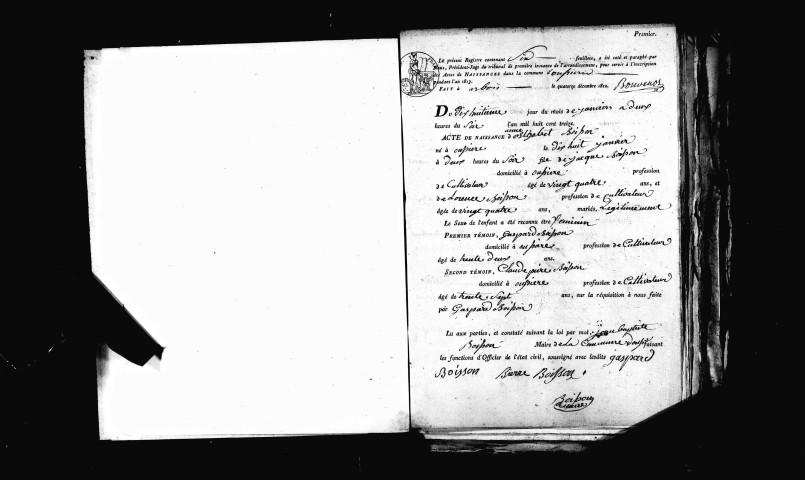 Premier.
Le présent Registre contenant Six feuillets, a été coté et paraphé par
Nous, Président-Juge du tribunal de première instance de l'arrondissement, pour servir à l'inscription
des Actes de NAISSANCES dans la commune
pendant l'an 1813.
FAIT à arbois le quatorze décembre 1812. Bouvenot
DU dix huitieme jour du mois de janvier a deux
heures du Soir l'an mil huit cent treize.
ACTE DE NAISSANCE d'Elisabet Boisson
né à supiere le dix huit janvier
à deux heures du Soir fille de jacque Boisson
domicilié à supiere profession
de Cultivateur âgé de vingt quatre ans, et
de Lorence Boisson profession de cultivateur
âgée de vingt quatre ans, mariés, Légitimement
Le Sexe de l'enfant a été reconnu être feminin
PREMIER TÉMOIN, Gaspard Boisson
domicilié à supiere profession de Cultivateur
âgé de trente deux ans.
SECOND TÉMOIN, Claude piere Boisson
domicilié à supiere profession de Cultivateur
âgé de trente Sept ans, sur la réquisition à nous faite
par Gaspard Boisson
Lu aux parties, et constaté suivant la loi par moi jean baptiste
Boisson Maire de la Commune faisant
les fonctions d'Officier de l'état civil, soussigné avec lesdits gaspard
Boisson Pierre Boisson
Boisson
maire